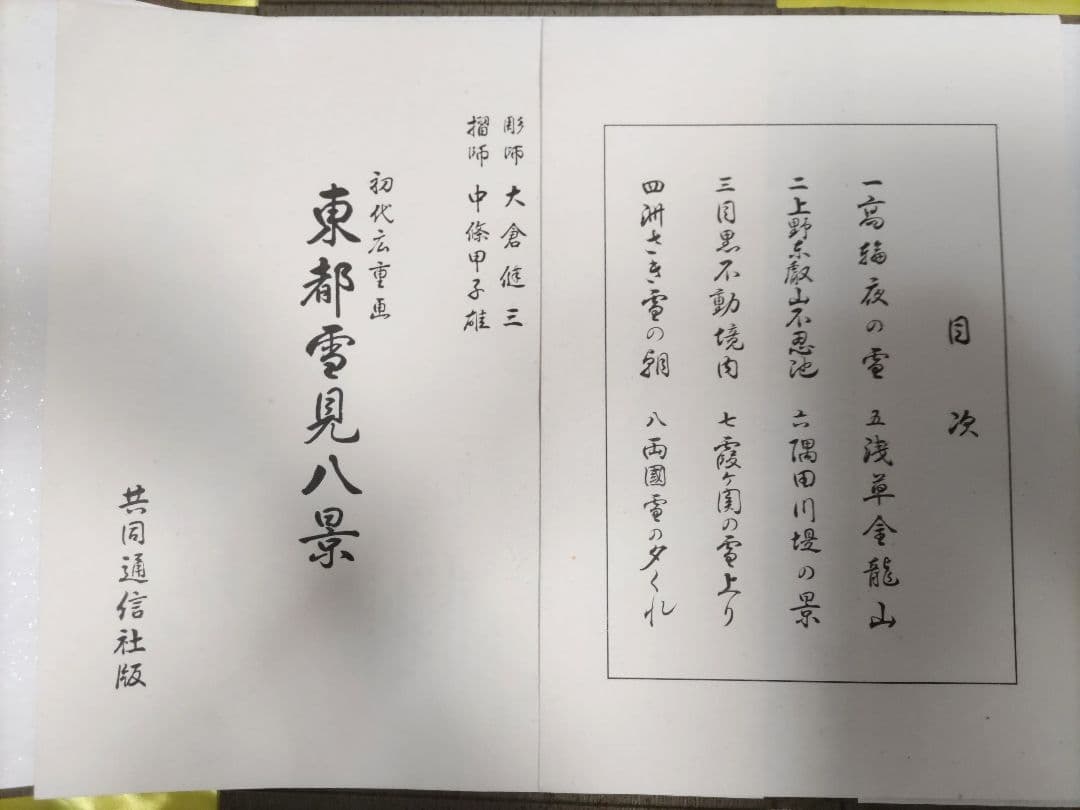 目次
一高輪夜の雪
二上野東叡山不忍池
三目黒不動境内
四洲さき雪の朝
五浅草金龍山
六隅田川堤の景
七霞ヶ関の雪上り
八両國雪の夕くれ
彫師 大倉健三
摺師 中條甲子雄
初代広重画
東都雪見八景
共同通信社版